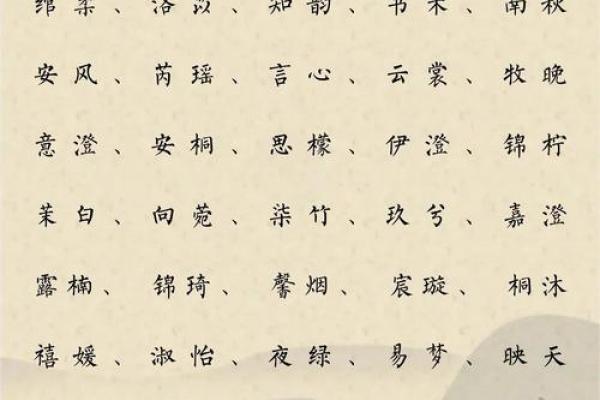 绾柔、洛以、知韵、书禾、南秋、
安风、芮瑶、言心、云裳、牧晚
意澄、安桐、思檬、伊澄、锦柠
茉白、向菀、柒竹、玖兮、嘉澄
露楠、锦琦、馨烟、宸璇、桐沐
禧媛、淑怡、夜绿、易梦、映天